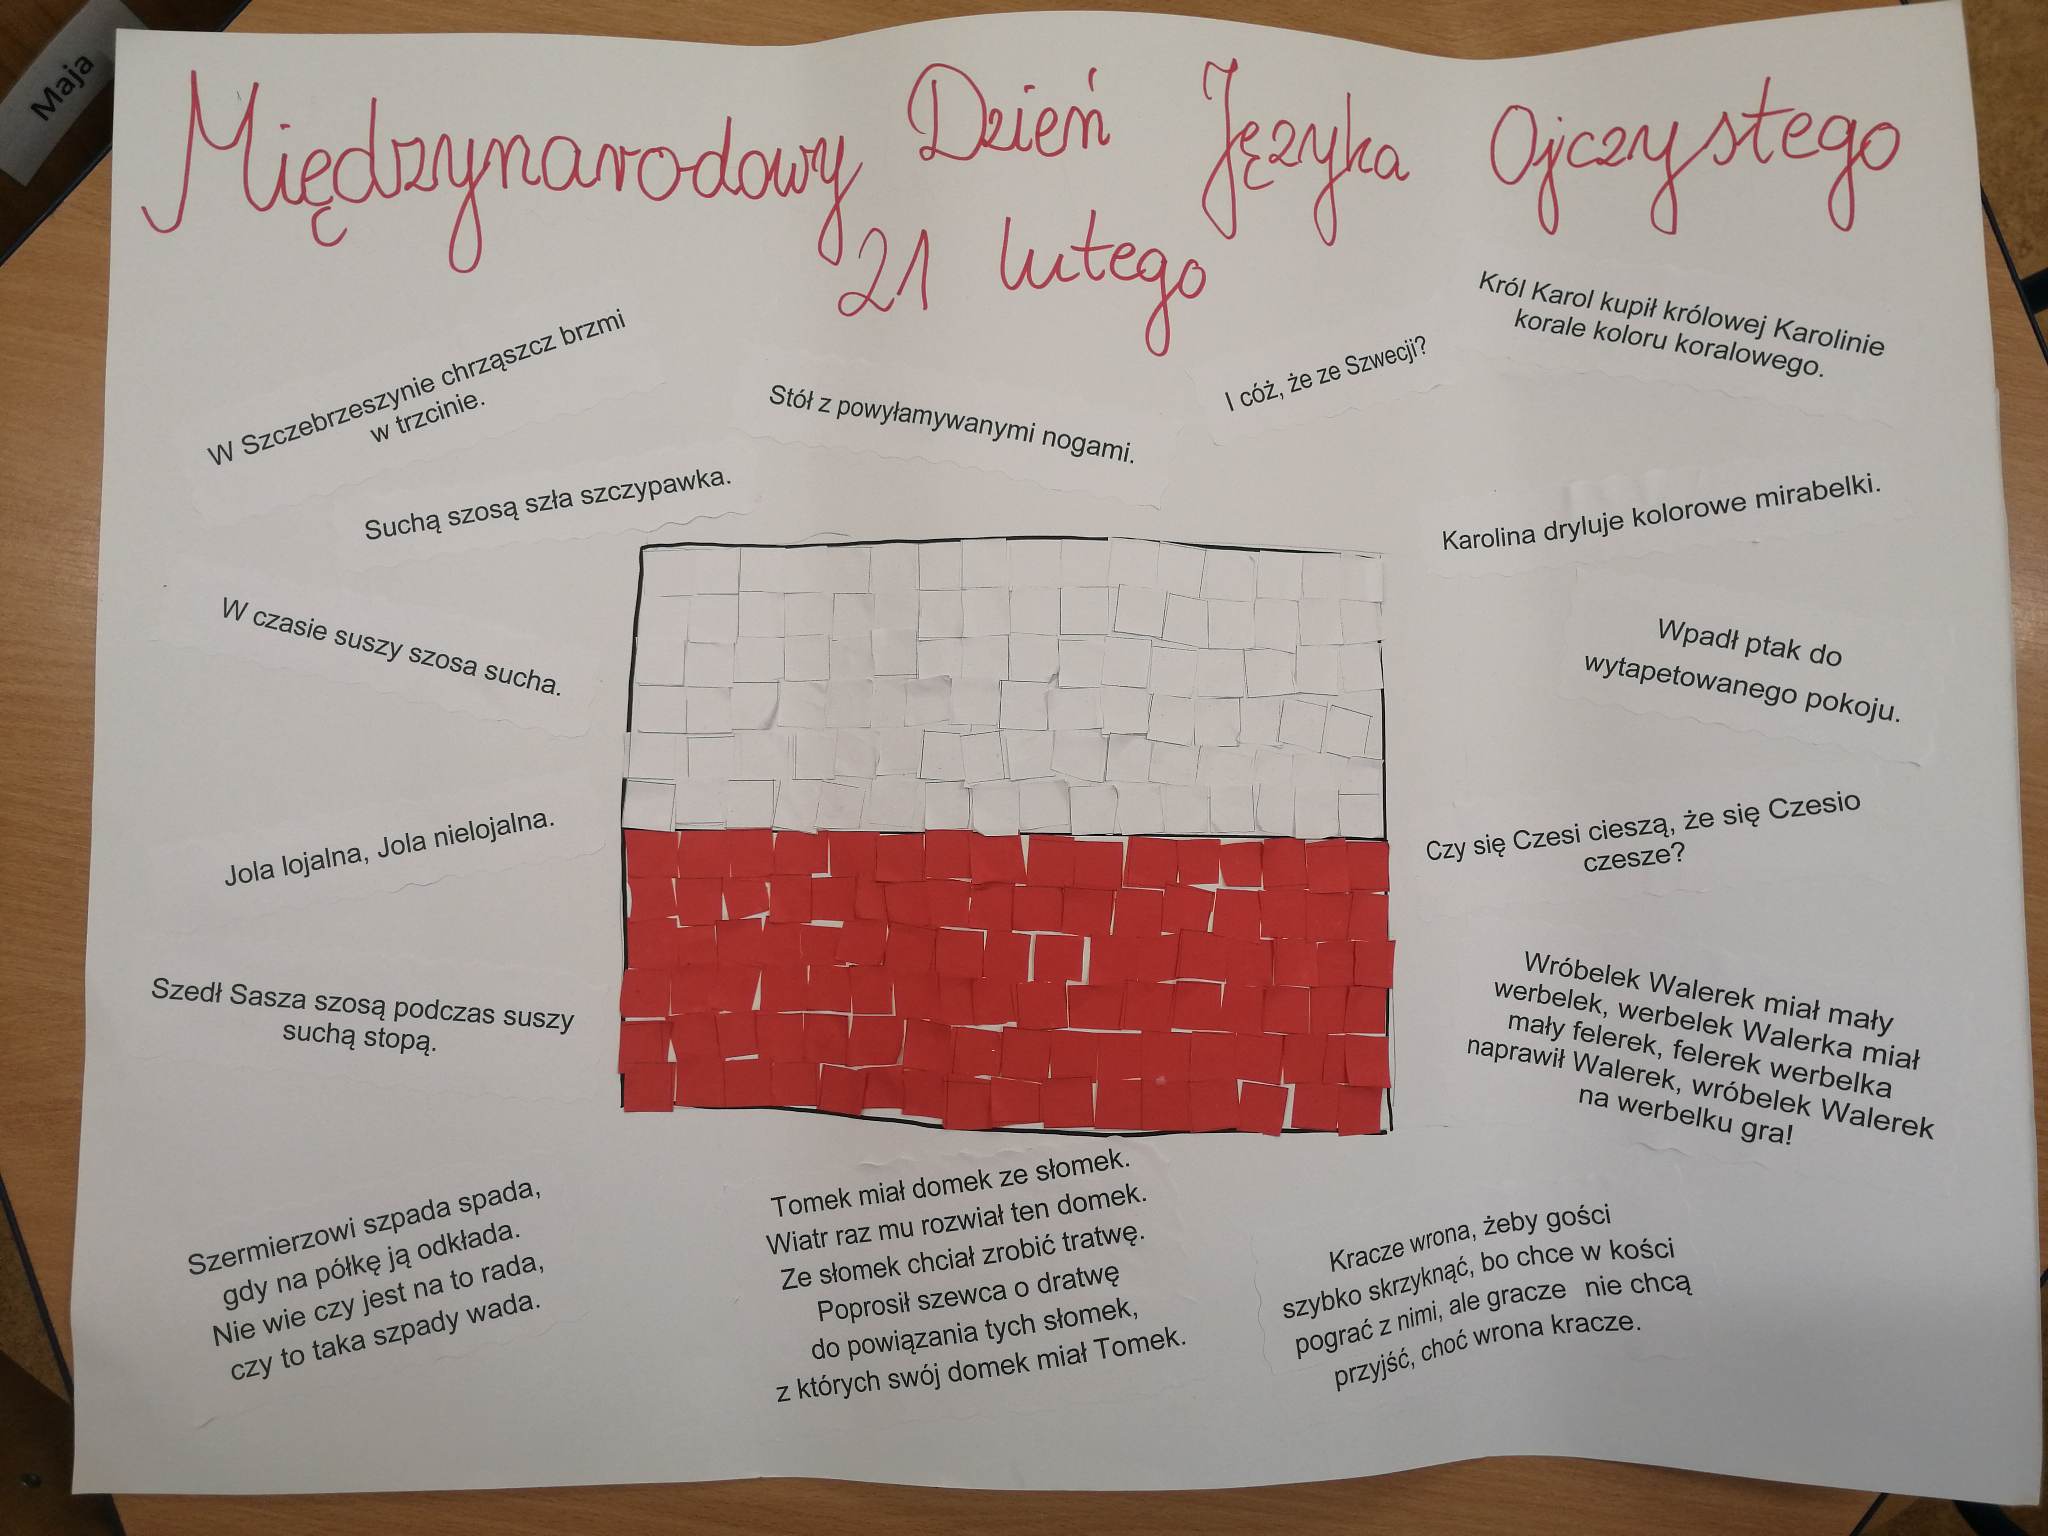 Maja
Międzynarodowy Dzień Języka Ojczystego
21 lutego
W Szczebrzeszynie chrząszcz brzmi
w trzcinie.
Stół z powyłamywanymi nogami.
I cóż, że ze Szwecji?
Król Karol kupił królowej Karolinie
korale koloru koralowego.
Suchą szosą szła szczypawka.
Karolina dryluje kolorowe mirabelki.
W czasie suszy szosa sucha.
Wpadł ptak do
wytapetowanego pokoju.
Jola lojalna, Jola nielojalna.
Czy się Czesi cieszą, że się Czesio
czesze?
Szedł Sasza szosą podczas suszy
suchą stopą.
Wróbelek Walerek miał mały
werbelek, werbelek Walerka miał
mały felerek, felerek werbelka
naprawił Walerek, wróbelek Walerek
na werbelku gra!
Szermierzowi szpada spada,
gdy na półkę ją odkłada.
Nie wie czy jest na to rada,
czy to taka szpady wada.
Tomek miał domek ze słomek.
Wiatr raz mu rozwiał ten domek.
Ze słomek chciał zrobić tratwę.
Poprosił szewca o dratwę
do powiązania tych słomek,
z których swój domek miał Tomek.
Kracze wrona, żeby gości
szybko skrzyknąć, bo chce w kości
pograć z nimi, ale gracze nie chcą
przyjść, choć wrona kracze.